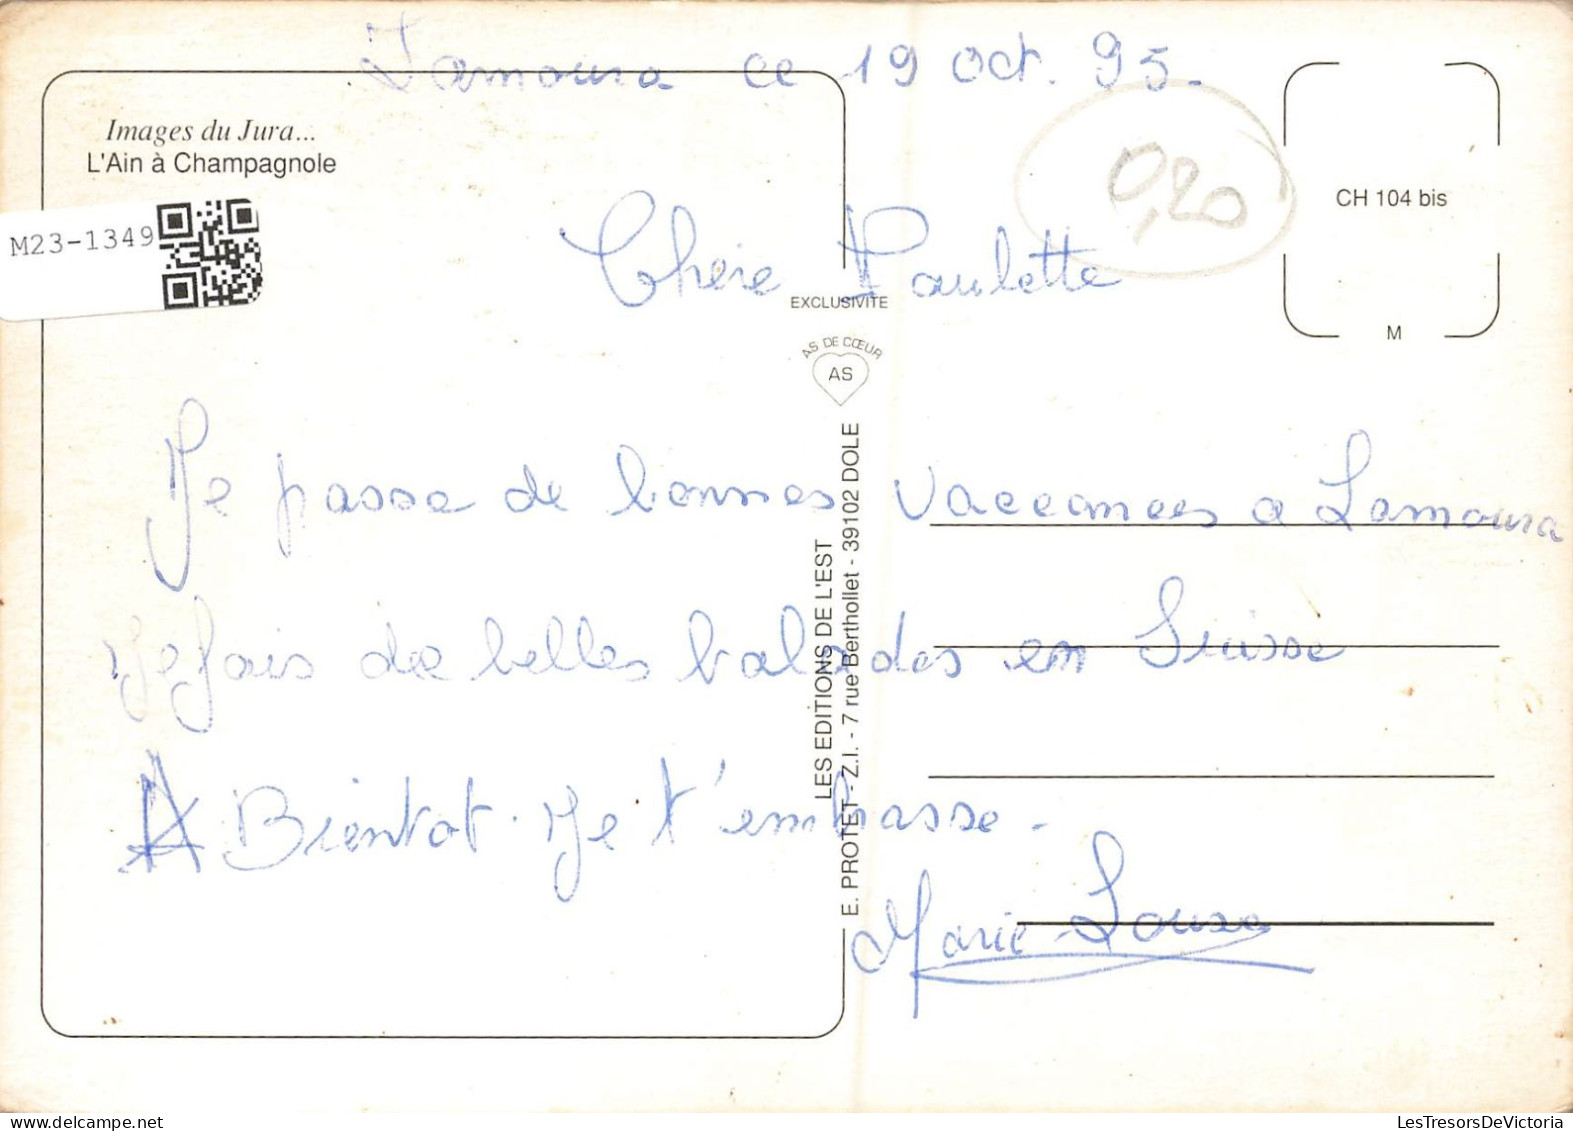 Lamoura ce 19 oct. 95.
Images du Jura...
L'Ain à Champagnole
M23-1349
0,20
CH 104 bis
M
Chere Paulette
EXCLUSIVITE
AS DE CŒUR
AS
Je passe de bonnes vaccances a Lamoura
Je fais de belles balades en Suisse
A Bientot. Je t'embrasse.
Marie-Louise
LES EDITIONS DE L'EST
E. PROTET - Z.I. - 7 rue Berthollet - 39102 DOLE
LesTresorsDeVictoria